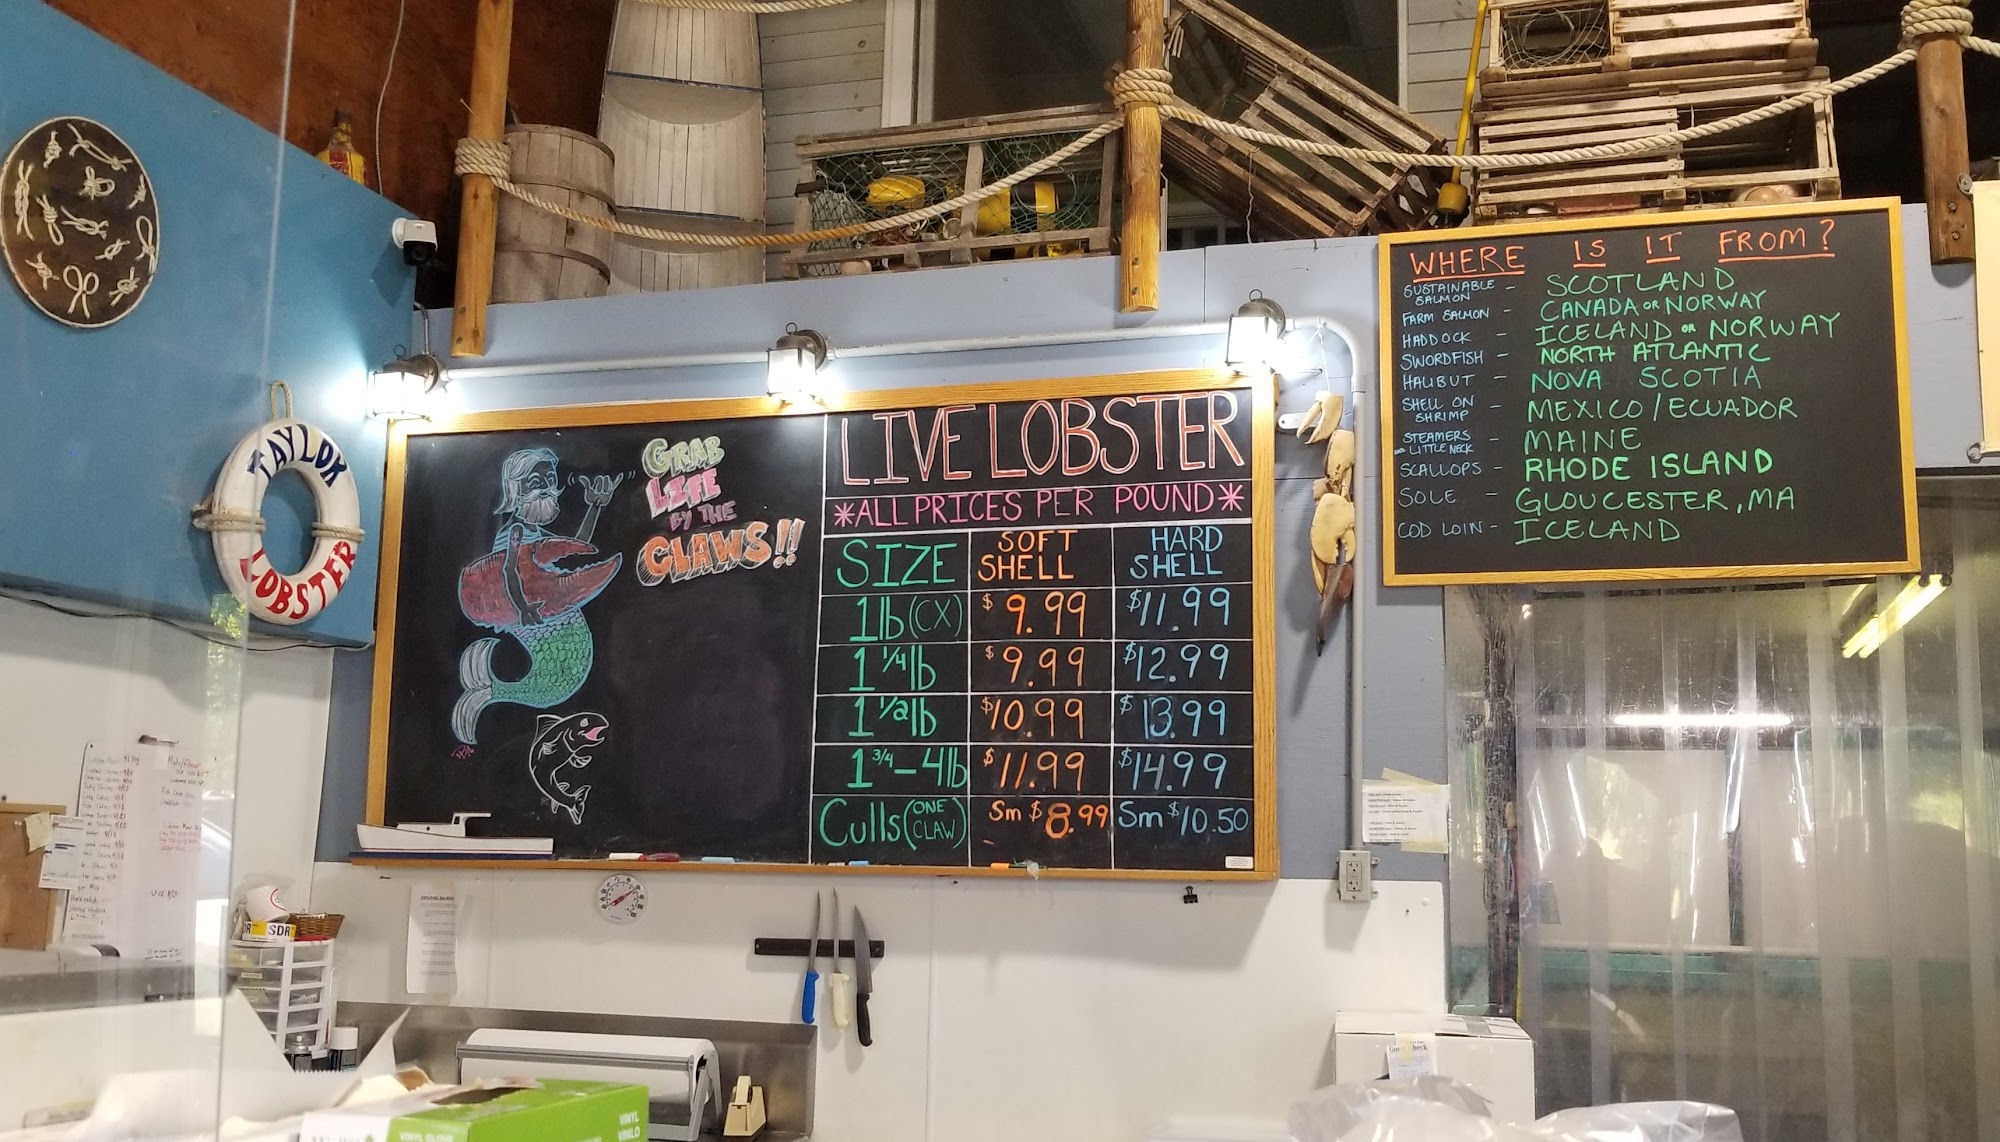 TAYLOR
LOBSTER
GRAB
LIFE
BY THE
CLAWS!!
LIVE LOBSTER
*ALL PRICES PER POUND*
SIZE SOFT SHELL HARD SHELL
1lb (CX) $9.99 $11.99
1 1/4 lb $9.99 $12.99
1 1/2 lb $10.99 $13.99
1 3/4 - 4lb $11.99 $14.99
Culls (ONE CLAW) Sm $8.99 Sm $10.50
WHERE IS IT FROM?
SUSTAINABLE SALMON - SCOTLAND
FARM SALMON - CANADA OR NORWAY
HADDOCK - ICELAND OR NORWAY
SWORDFISH - NORTH ATLANTIC
HALIBUT - NOVA SCOTIA
SHELL ON SHRIMP - MEXICO/ECUADOR
STEAMERS AND LITTLE NECK - MAINE
SCALLOPS - RHODE ISLAND
SOLE - GLOUCESTER, MA
COD LOIN - ICELAND
SDR
VINYL
VINILO